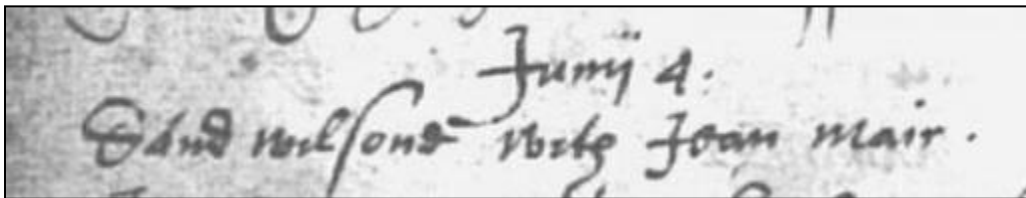 Junij 4.
wilsone with Jean mair.